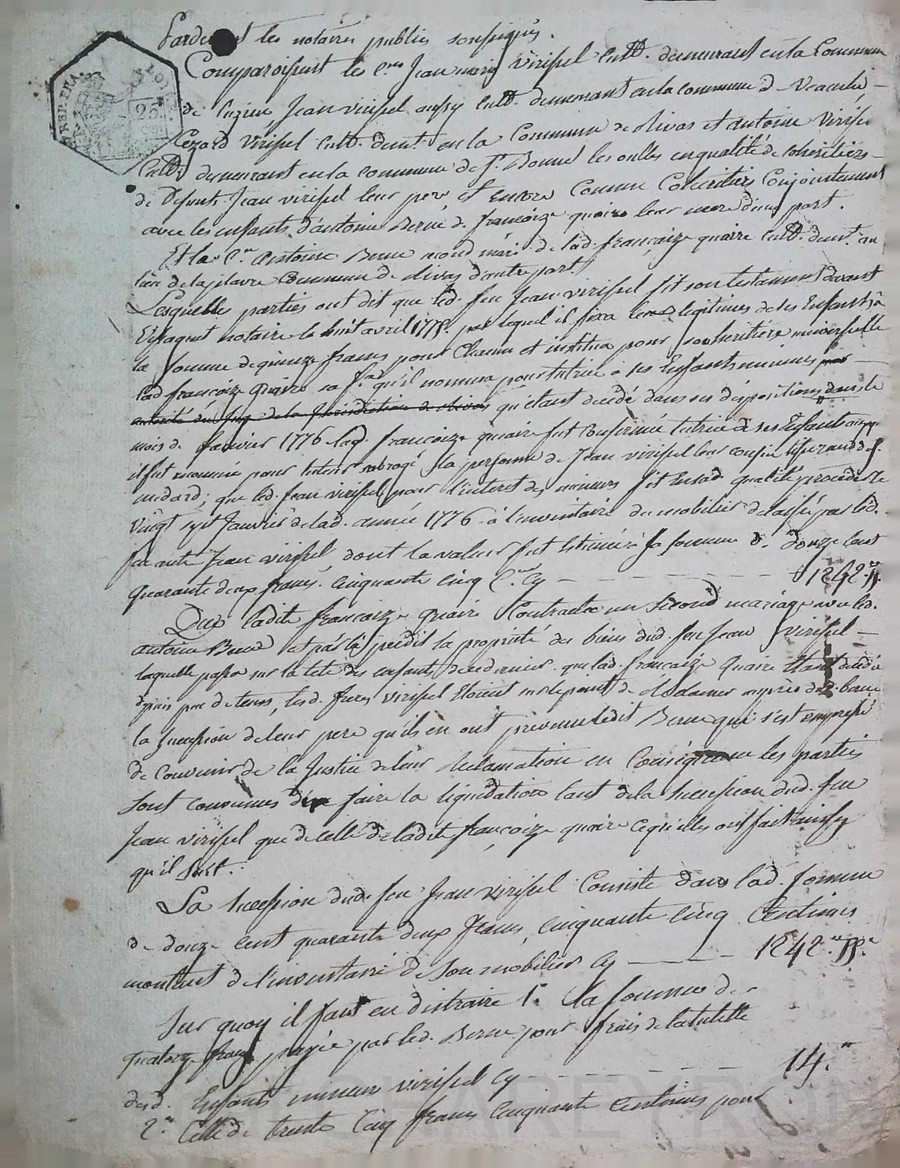 Pardevant les notaires publics soussignés.
Comparoissent les c.ens Jean mary virissel cult. demeurant en la Commune
de Jean virissel aussy cult. demeurant en la commune d
Cezard virissel cult. demt. en la Commune de olivas et antoine viriss
cult. demeurant en la commune de St. Bonnet les oulles en qualité de cohéritiers
de Defunt Jean virissel leur pere et encore Comme Cohéritiers Conjointement
avec les enfants d'antoine Berne de françoize quaire leur mere d'une part.
Et le C.en Antoine Berne mari de lad. françoize quaire cult. demt. au
lieu de la Commune de olivas d'autre part
Lesquelles parties ont dit que led. feu Jean virissel fit son testament devant
notaire le huit avril 1775. par lequel il fixa les legitimes de ses Enfants à
la somme de quinze francs pour Chacun et institua pour son heritiere universelle
lad françoize quaire sa f.e qu'il nomma pour tutrice a ses Enfants mineurs
de la Jurisdiction de olivas qu'étant décédé dans ses dispositions dans le
mois de Janvier 1776 lad. françoize quaire fut confirmée tutrice de ses Enfants
il fut nommé pour tuteur subrogé la personne de Jean virissel leur cousin de St.
medard; que led. Jean virissel pour l'interet des mineurs fit en sad. qualité procéder le
vingt sept Janvier de lad. année 1776. à l'inventaire du mobilier delaissé par led.
feu autre Jean virissel dont la valeur fut Estimée la somme de Douze Cent
quarante deux francs cinquante cinq C.mes Cy - - - 1242.ff 55
Que ladite françoize quaire Contracta un second mariage avec led.
antoine Berne et par là perdit la propriété des biens dud. feu Jean virissel
laquelle passa sur la tête des enfants de ce dernier. que lad. françoize quaire Etant décédée
depuis peu de tems, les d. freres virissel étoient sur le point de réclamer auprès dud. berne
la succession de leur pere qu'ils en ont prévenu ledit Berne qui s'est empressé
de convenir de la Justice de leur réclamation en Conséquence les parties
sont convenues de faire la liquidation tant de la succession dud. feu
Jean virissel que de celle de ladite françoize quaire ce qu'elles ont fait ainsy
qu'il suit.
La succession dud. feu Jean virissel Consiste dans lad. somme
de douze cent quarante deux francs, cinquante cinq Centimes
montant de l'inventaire de son mobilier Cy - - - 1242.ff 55.c
Sur quoy il faut en distraire 1.° la somme de
quatorze francs payée par led. Berne pour frais de la tutelle
desd. Enfants mineurs virissel Cy - - - 14.ff
2.° Celle de trente Cinq francs cinquante Centimes pour
REP. FRA.
25
CHAREYRON